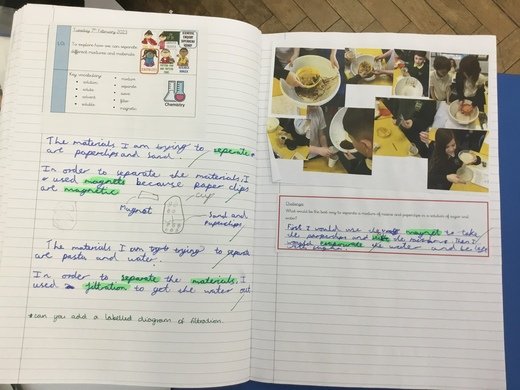 Tuesday 7th February 2023
LO:
To explore how we can separate
different mixtures and materials
Key vocabulary:
solution
soluble
solvent
solute
mixture
separate
sieve
filter
magnetic
Chemistry
The materials I am trying to seperate
are paperclips and sand.
In order to separate the materials, I
used magnets because paper clips
are magnetic
Magnet
cup
Sand and
Paperclips
The materials I am trying to separate
are pasta and water.
In order to separate the materials, I
used filtration to get the water out
*can you add a labelled diagram of filtration.
Challenge:
What would be the best way to separate a mixture of and paperclips in a solution of sugar and
water?
First I would use the magnet to take
the paperclips and the mixture. Then I
would the water and be left